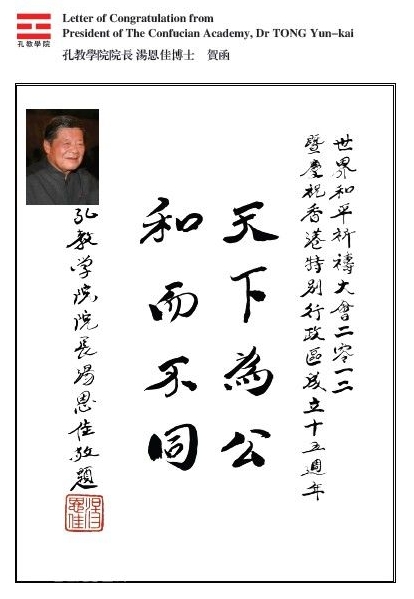 孔教學院
Letter of Congratulation from
President of The Confucian Academy, Dr TONG Yun-kai
孔教學院院長 湯恩佳博士 賀函
世界和平祈禱大會二零一二
暨慶祝香港特別行政區成立十五週年
天下為公
和而不同
孔教学院院長湯恩佳敬題
湯恩佳印